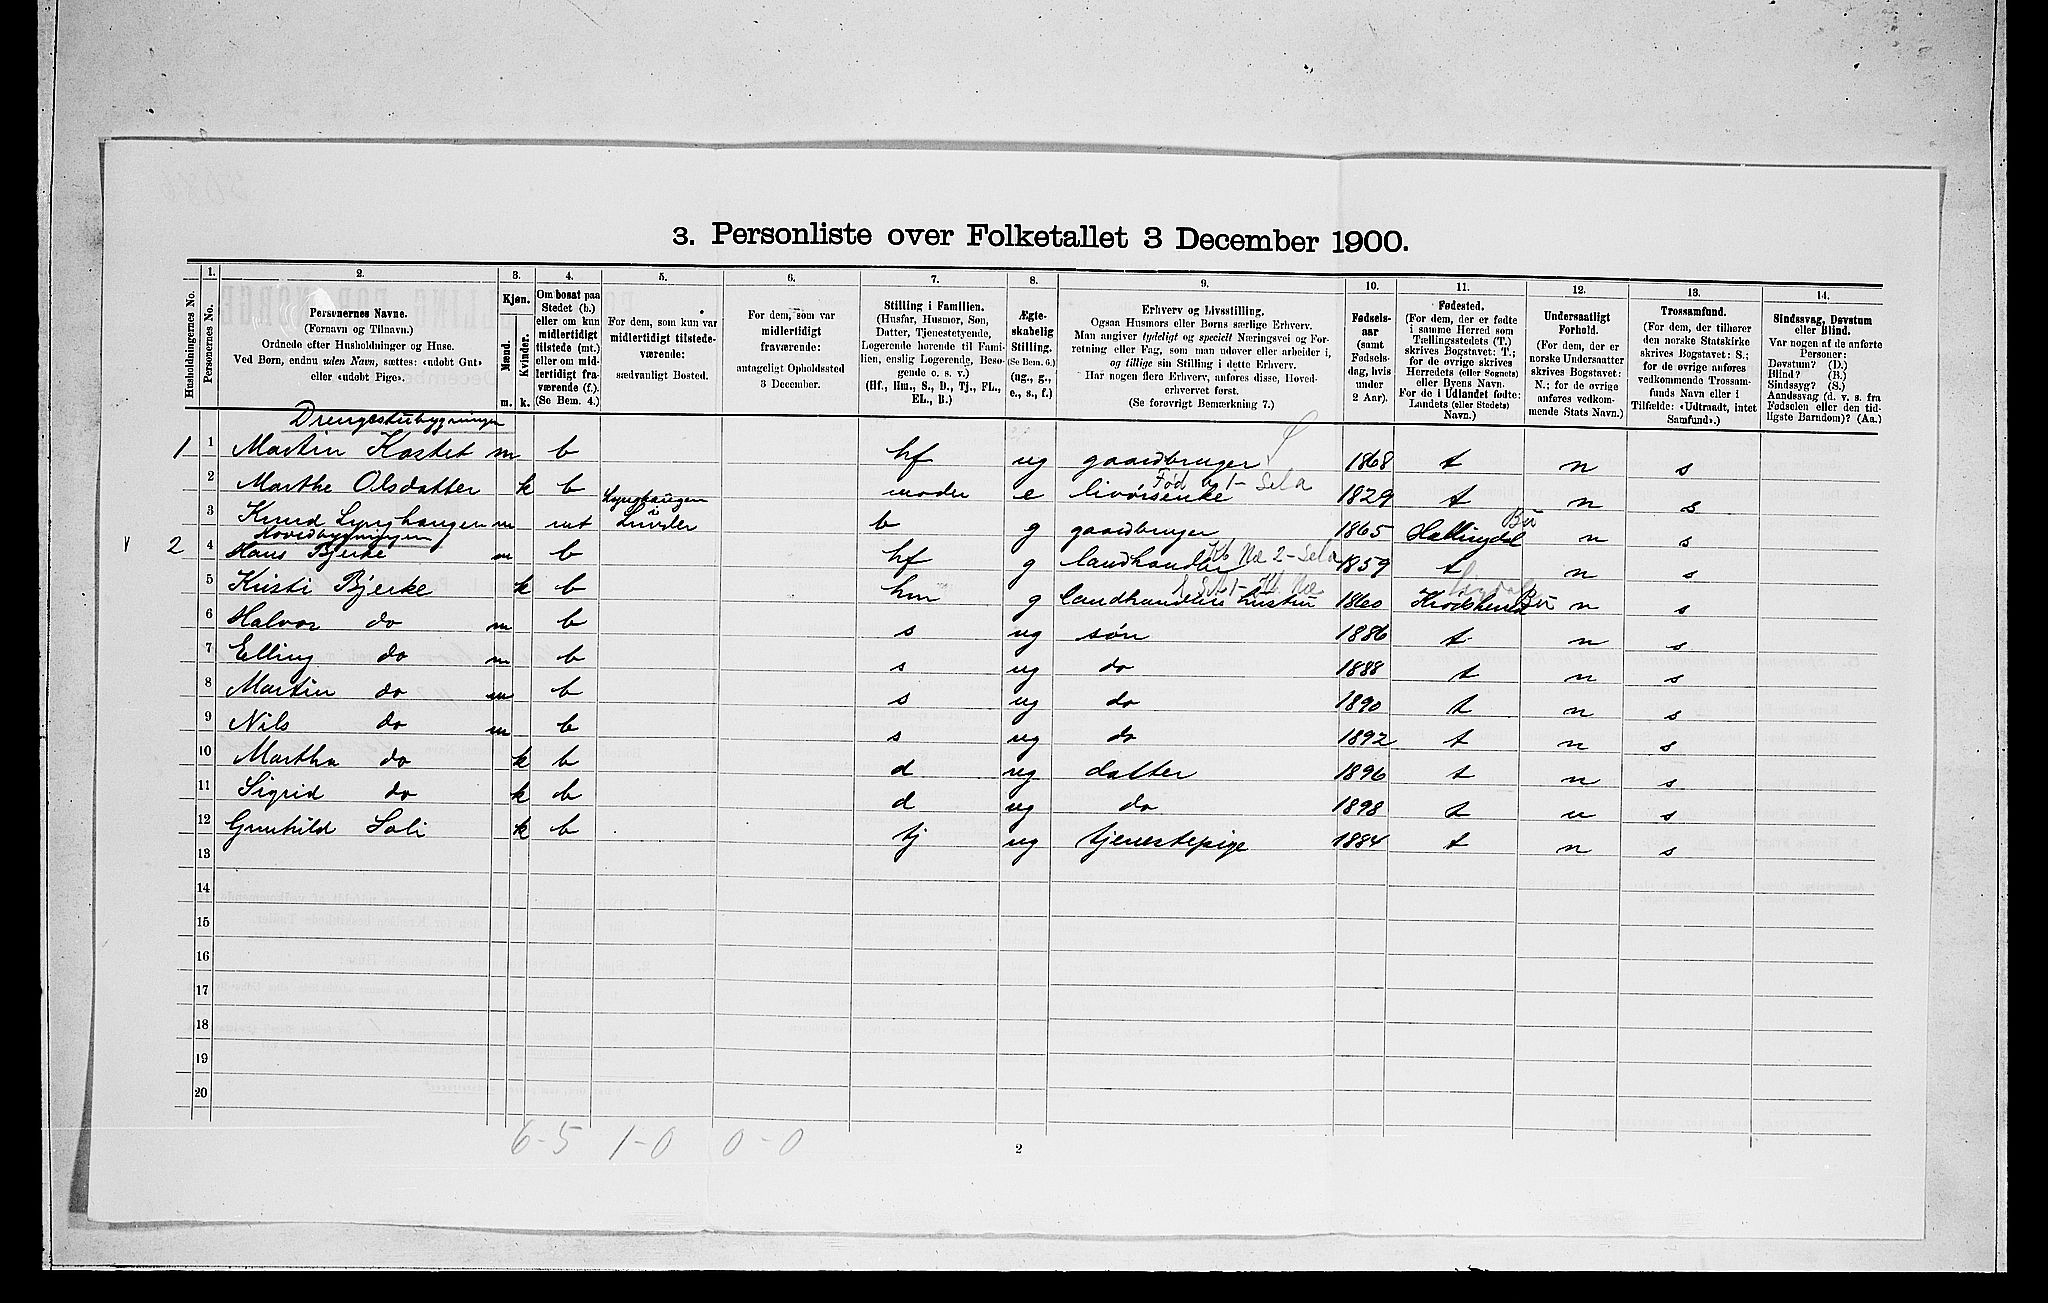 3. Personliste over Folketallet 3 December 1900.
Husholdningernes No.
1. Personernes No.
2. Personernes Navne.
(Fornavn og Tilnavn.)
Ordnede efter Husholdninger og Huse.
Ved Børn, endnu uden Navn, sættes: «udøbt Gut»
eller «udøbt Pige».
3. Kjøn.
Mænd. Kvinder.
m. k.
4. Om bosat paa
Stedet (b.)
eller om kun
midlertidigt
tilstede (mt.)
eller om mid-
lertidigt fra-
værende (f.).
(Se Bem. 4.)
5. For dem, som kun var
midlertidigt tilstede-
værende:
sædvanligt Bosted.
6. For dem, som var
midlertidigt
fraværende:
antageligt Opholdssted
3 December.
7. Stilling i Familien.
(Husfar, Husmor, Søn,
Datter, Tjenestetyende,
Logerende hørende til Fami-
lien, enslig Logerende, Besø-
gende o. s. v.)
(Hf., Hm., S., D., Tj., FL.,
EL., B.)
8. Ægte-
skabelig
Stilling.
(Se Bem. 6.)
(ug., g.,
e., s., f.)
9. Erhverv og Livsstilling.
Ogsaa Husmors eller Børns særlige Erhverv.
Man angiver tydeligt og specielt Næringsvei og For-
retning eller Fag, som man udøver eller arbeider i,
og tillige sin Stilling i dette Erhverv.
Har nogen flere Erhverv, anføres disse, Hoved-
erhvervet først.
(Se forøvrigt Bemærkning 7.)
10. Fødsels-
aar
(samt
Fødsels-
dag, hvis
under
2 Aar).
11. Fødested.
(For dem, der er fødte
i samme Herred som
Tællingsstedets (T.)
skrives Bogstavet: T.;
for de øvrige skrives
Herredets (eller Sognets)
eller Byens Navn.
For de i Udlandet fødte:
Landets (eller Stedets)
Navn.)
12. Undersaatligt
Forhold.
(For dem, der er
norske Undersaatter
skrives Bogstavet:
N.; for de øvrige
anføres vedkom-
mende Stats Navn.)
13. Trossamfund.
(For dem, der tilhører
den norske Statskirke
skrives Bogstavet: S.;
for de øvrige anføres
vedkommende Trossam-
funds Navn eller i
Tilfælde: «Udtraadt, intet
Samfund».)
14. Sindssvag, Døvstum
eller Blind.
Var nogen af de anførte
Personer:
Døvstum? (D.)
Blind? (B.)
Sindssyg? (S.)
Aandssvag (d. v. s. fra
Fødselen eller den tid-
ligste Barndom)? (Aa.)
Drengestubygningen
1 1 Martin Kostet m b hf ug gaardbruger 1868 t n s
2 Marthe Olsdatter k b moder e Fød 1 - Sela 1829 t n s
3 Knud Lynghaugen m mt Lynghaugen i b g gaardbruger 1865 Hallingdal Bu n s
Hovedbygningen
2 4 Hans Bjerke m b hf g landhandler Næ 2 - Sela 1859 t n s
5 Kristi Bjerke k b hm g landhandlers hustru 1860 Bu n s
6 Halvor do m b s ug søn 1886 t n s
7 Elling do m b s ug do 1888 t n s
8 Martin do m b s ug do 1890 t n s
9 Nils do m b s ug do 1892 t n s
10 Martha do k b d ug datter 1896 t n s
11 Sigrid do k b d ug do 1898 t n s
12 Gunhild Soli k b tj ug tjenestepige 1884 t n s
13
14
15
16
17
18
19
20
6-5 1-0 0-0
2